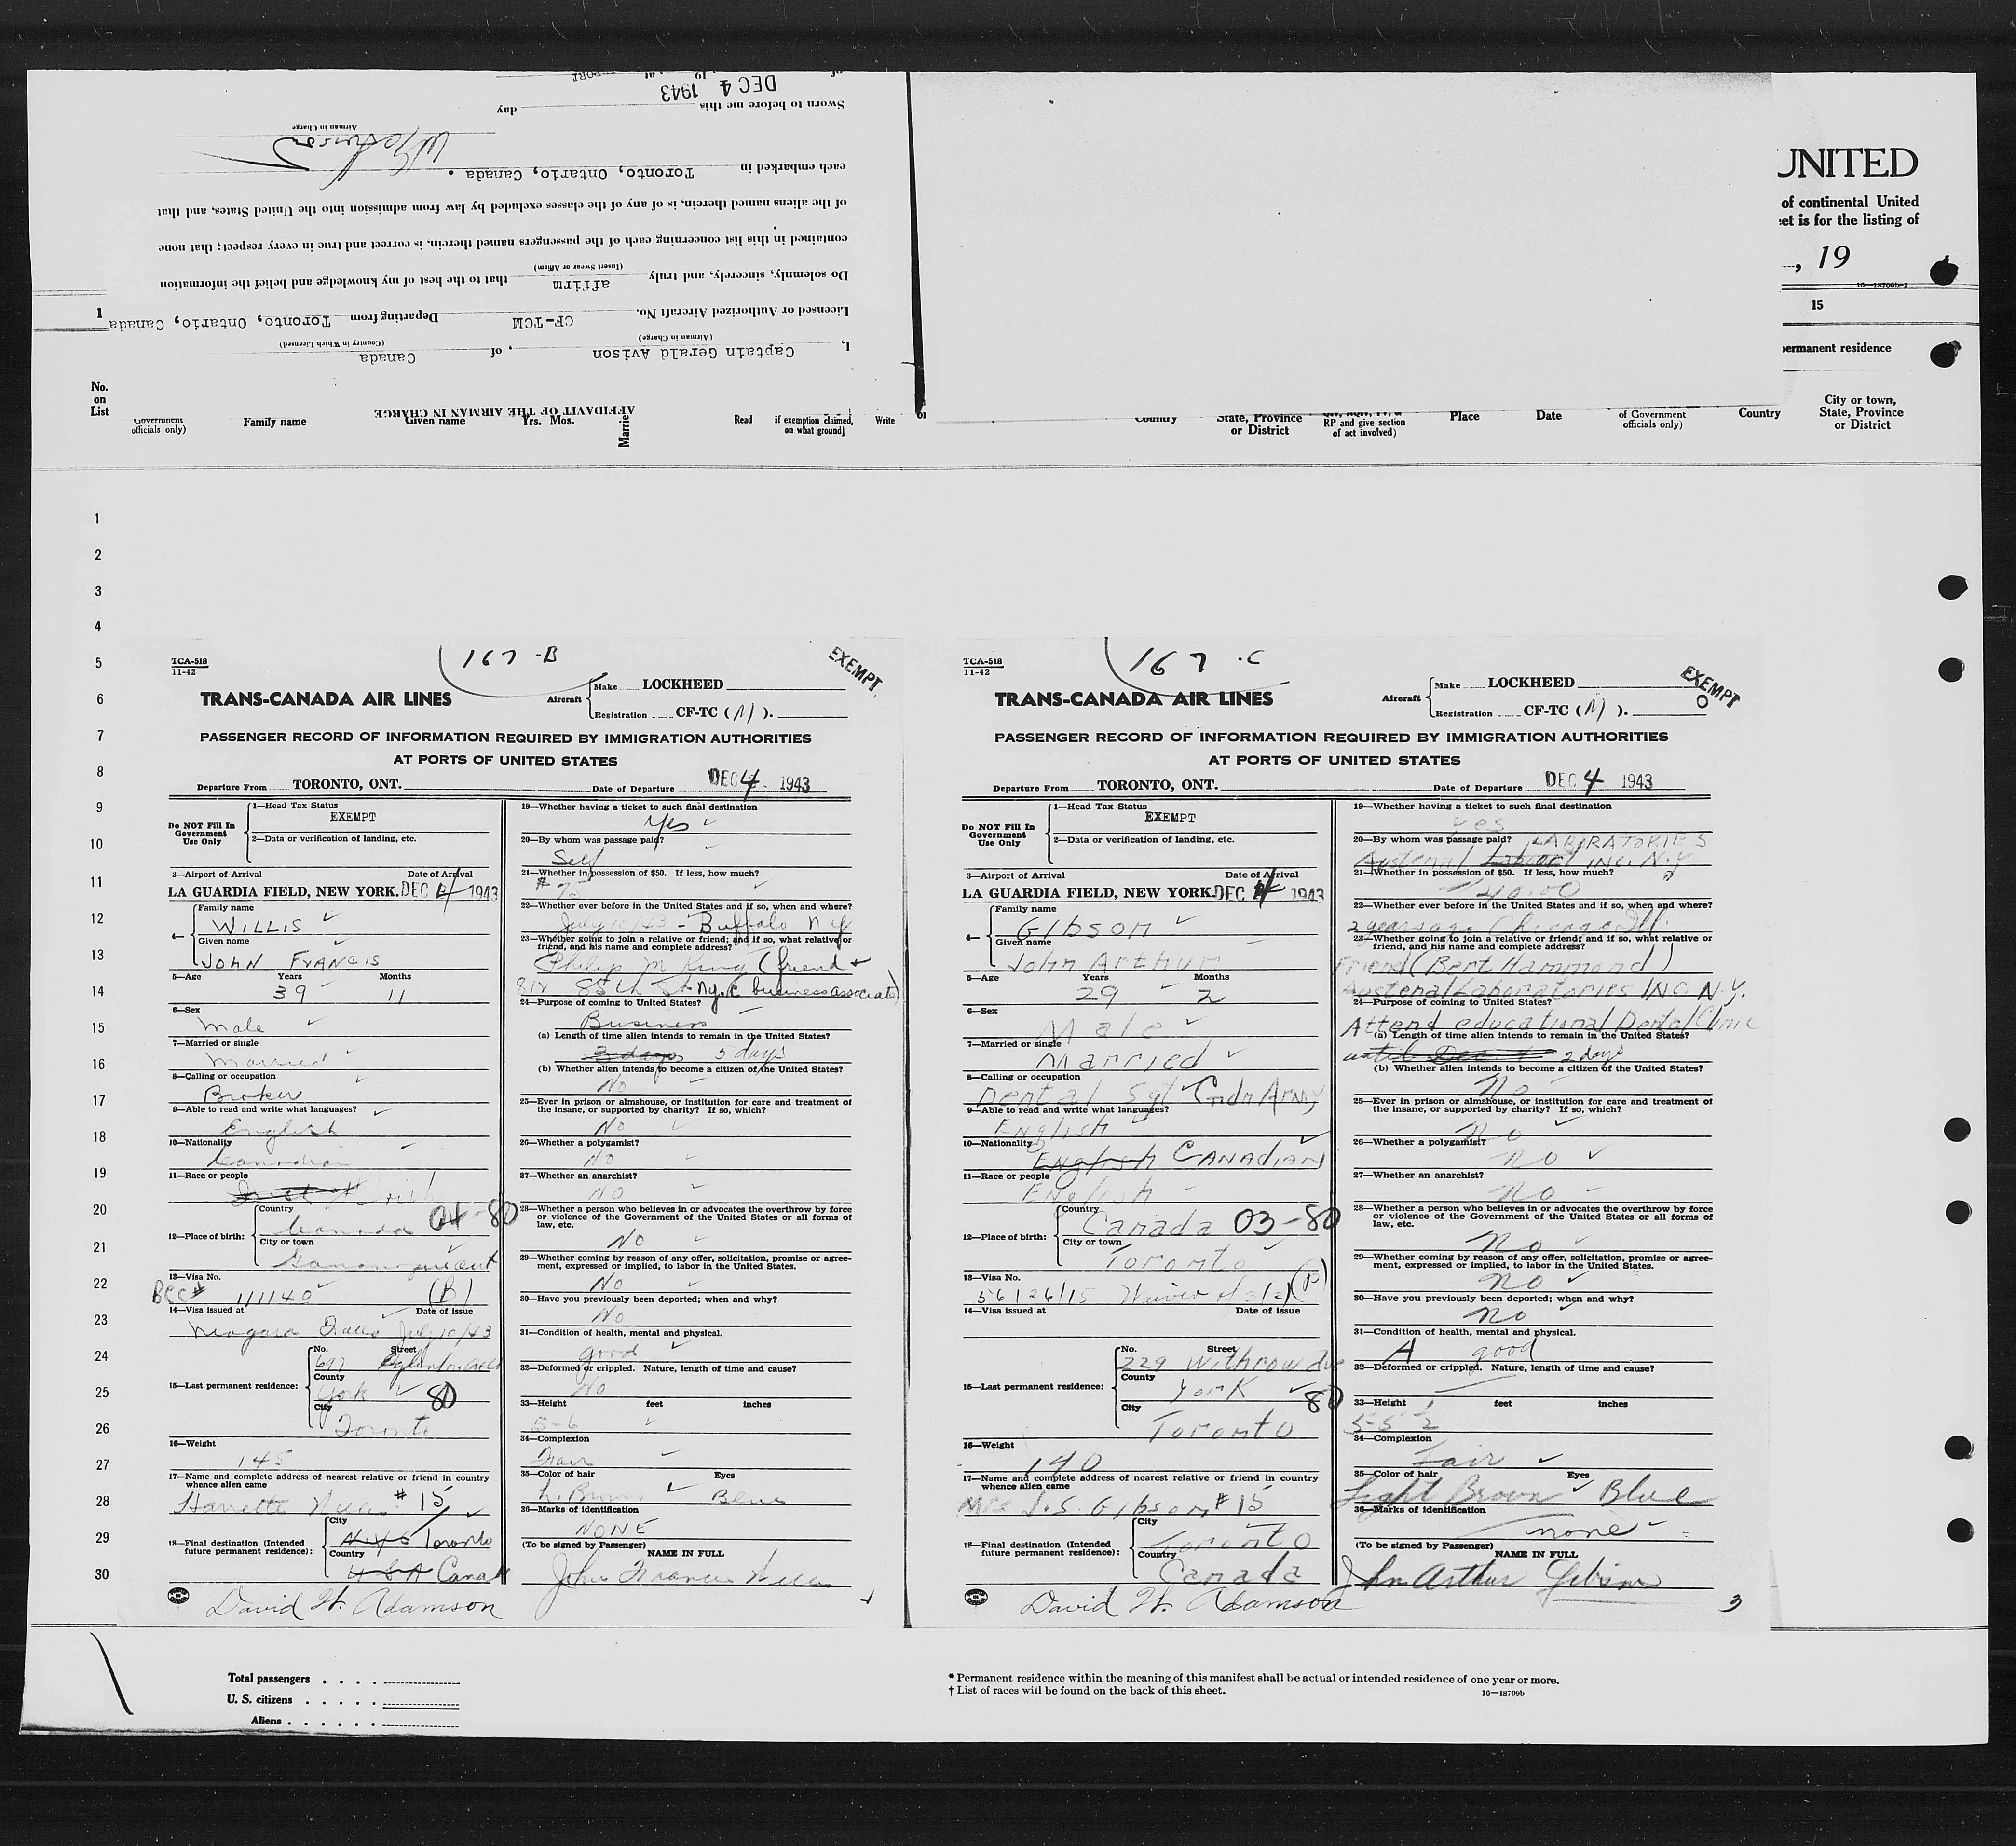 AFFIDAVIT OF THE AIRMAN IN CHARGE
I, Captain Gerald Avison, of Canada
(Airman in Charge) (Country in Which Licensed)
Licensed or Authorized Aircraft No. CF-TCM Departing from Toronto, Ontario, Canada
Do solemnly, sincerely, and truly affirm that to the best of my knowledge and belief the information
(Insert Swear or Affirm)
contained in this list concerning each of the passengers named therein, is correct and true in every respect; that none
of the aliens named therein, is of any of the classes excluded by law from admission into the United States, and that
each embarked in Toronto, Ontario, Canada.
Airman in Charge
Sworn to before me this day
DEC 4 1943
of 19 at
UNITED
of continental United
et is for the listing of
, 19
16—18709b-1
1
15
permanent residence
No.
on
List
Government
officials only)
Family name
Given name
Yrs. Mos.
Married
Read
if exemption claimed,
on what ground]
Write
Country
State, Province
or District
RP and give section
of act involved)
Place
Date
of Government
officials only)
Country
City or town,
State, Province
or District
1
2
3
4
5
6
7
8
9
10
11
12
13
14
15
16
17
18
19
20
21
22
23
24
25
26
27
28
29
30
TCA-518
11-42
167-B
EXEMPT
TRANS-CANADA AIR LINES
Aircraft
Make LOCKHEED
Registration CF-TC (M).
PASSENGER RECORD OF INFORMATION REQUIRED BY IMMIGRATION AUTHORITIES
AT PORTS OF UNITED STATES
Departure From TORONTO, ONT. Date of Departure DEC 4 1943
Do NOT Fill In
Government
Use Only
1—Head Tax Status
EXEMPT
2—Data or verification of landing, etc.
3—Airport of Arrival Date of Arrival
LA GUARDIA FIELD, NEW YORK. DEC 4 1943
4—
Family name
WILLIS
Given name
JOHN FRANCIS
5—Age Years Months
39 11
6—Sex
Male
7—Married or single
Married
8—Calling or occupation
Broker
9—Able to read and write what languages?
English
10—Nationality
Canadian
11—Race or people
12—Place of birth:
Country
Canada 04-80
City or town
13—Visa No.
BCC# 111140 (B)
14—Visa issued at Date of issue
Niagara Falls July 10/43
15—Last permanent residence:
No. Street
697
County
York 80
City
Toronto
16—Weight
145
17—Name and complete address of nearest relative or friend in country
whence alien came
# 15
18—Final destination (Intended
future permanent residence):
City
NYS Toronto
Country
USA Canada
David W. Adamson
19—Whether having a ticket to such final destination
Yes
20—By whom was passage paid?
Self
21—Whether in possession of $50. If less, how much?
# 75
22—Whether ever before in the United States and if so, when and where?
July 10/43 - Buffalo N Y
23—Whether going to join a relative or friend; and if so, what relative or
friend, and his name and complete address?
Philip M King (friend +
85th St Ny.C business associate)
24—Purpose of coming to United States?
Business
(a) Length of time alien intends to remain in the United States?
3 days 5 days
(b) Whether alien intends to become a citizen of the United States?
No
25—Ever in prison or almshouse, or institution for care and treatment of
the insane, or supported by charity? If so, which?
No
26—Whether a polygamist?
No
27—Whether an anarchist?
No
28—Whether a person who believes in or advocates the overthrow by force
or violence of the Government of the United States or all forms of
law, etc.
No
29—Whether coming by reason of any offer, solicitation, promise or agree-
ment, expressed or implied, to labor in the United States.
No
30—Have you previously been deported; when and why?
No
31—Condition of health, mental and physical.
good
32—Deformed or crippled. Nature, length of time and cause?
No
33—Height feet inches
5-6
34—Complexion
Fair
35—Color of hair Eyes
L. Brown Blue
36—Marks of identification
NONE
(To be signed by Passenger) NAME IN FULL
John Francis Willis
TCA-518
11-42
167-C
EXEMPT
TRANS-CANADA AIR LINES
Aircraft
Make LOCKHEED
Registration CF-TC (M).
PASSENGER RECORD OF INFORMATION REQUIRED BY IMMIGRATION AUTHORITIES
AT PORTS OF UNITED STATES
Departure From TORONTO, ONT. Date of Departure DEC 4 1943
Do NOT Fill In
Government
Use Only
1—Head Tax Status
EXEMPT
2—Data or verification of landing, etc.
3—Airport of Arrival Date of Arrival
LA GUARDIA FIELD, NEW YORK. DEC 4 1943
4—
Family name
Gibson
Given name
John Arthur
5—Age Years Months
29 2
6—Sex
Male
7—Married or single
Married
8—Calling or occupation
Dental Sgt Cndn Army
9—Able to read and write what languages?
English
10—Nationality
English CANADIAN
11—Race or people
English
12—Place of birth:
Country
Canada 03-80
City or town
Toronto
13—Visa No.
56126/15 Waiver (P)
14—Visa issued at Date of issue
15—Last permanent residence:
No. Street
229 Withrow Ave
County
York 80
City
Toronto
16—Weight
140
17—Name and complete address of nearest relative or friend in country
whence alien came
Mrs J.S. Gibson # 15
18—Final destination (Intended
future permanent residence):
City
Toronto
Country
Canada
David W. Adamson
19—Whether having a ticket to such final destination
Yes
20—By whom was passage paid?
LABORATORIES
Austenal INC. N.Y
21—Whether in possession of $50. If less, how much?
40.00
22—Whether ever before in the United States and if so, when and where?
2 years ago Chicago Ill.
23—Whether going to join a relative or friend; and if so, what relative or
friend, and his name and complete address?
Friend (Bert Hammond)
Austenal Laboratories INC. N.Y.
24—Purpose of coming to United States?
Attend educational Dental Clinic
(a) Length of time alien intends to remain in the United States?
until Dec 2 days
(b) Whether alien intends to become a citizen of the United States?
No
25—Ever in prison or almshouse, or institution for care and treatment of
the insane, or supported by charity? If so, which?
No
26—Whether a polygamist?
No
27—Whether an anarchist?
No
28—Whether a person who believes in or advocates the overthrow by force
or violence of the Government of the United States or all forms of
law, etc.
No
29—Whether coming by reason of any offer, solicitation, promise or agree-
ment, expressed or implied, to labor in the United States.
No
30—Have you previously been deported; when and why?
No
31—Condition of health, mental and physical.
A good
32—Deformed or crippled. Nature, length of time and cause?
33—Height feet inches
5-5½
34—Complexion
Fair
35—Color of hair Eyes
Light Brown Blue
36—Marks of identification
none
(To be signed by Passenger) NAME IN FULL
John Arthur Gibson
3
Total passengers
U. S. citizens
Aliens
* Permanent residence within the meaning of this manifest shall be actual or intended residence of one year or more.
† List of races will be found on the back of this sheet.
16—18709b